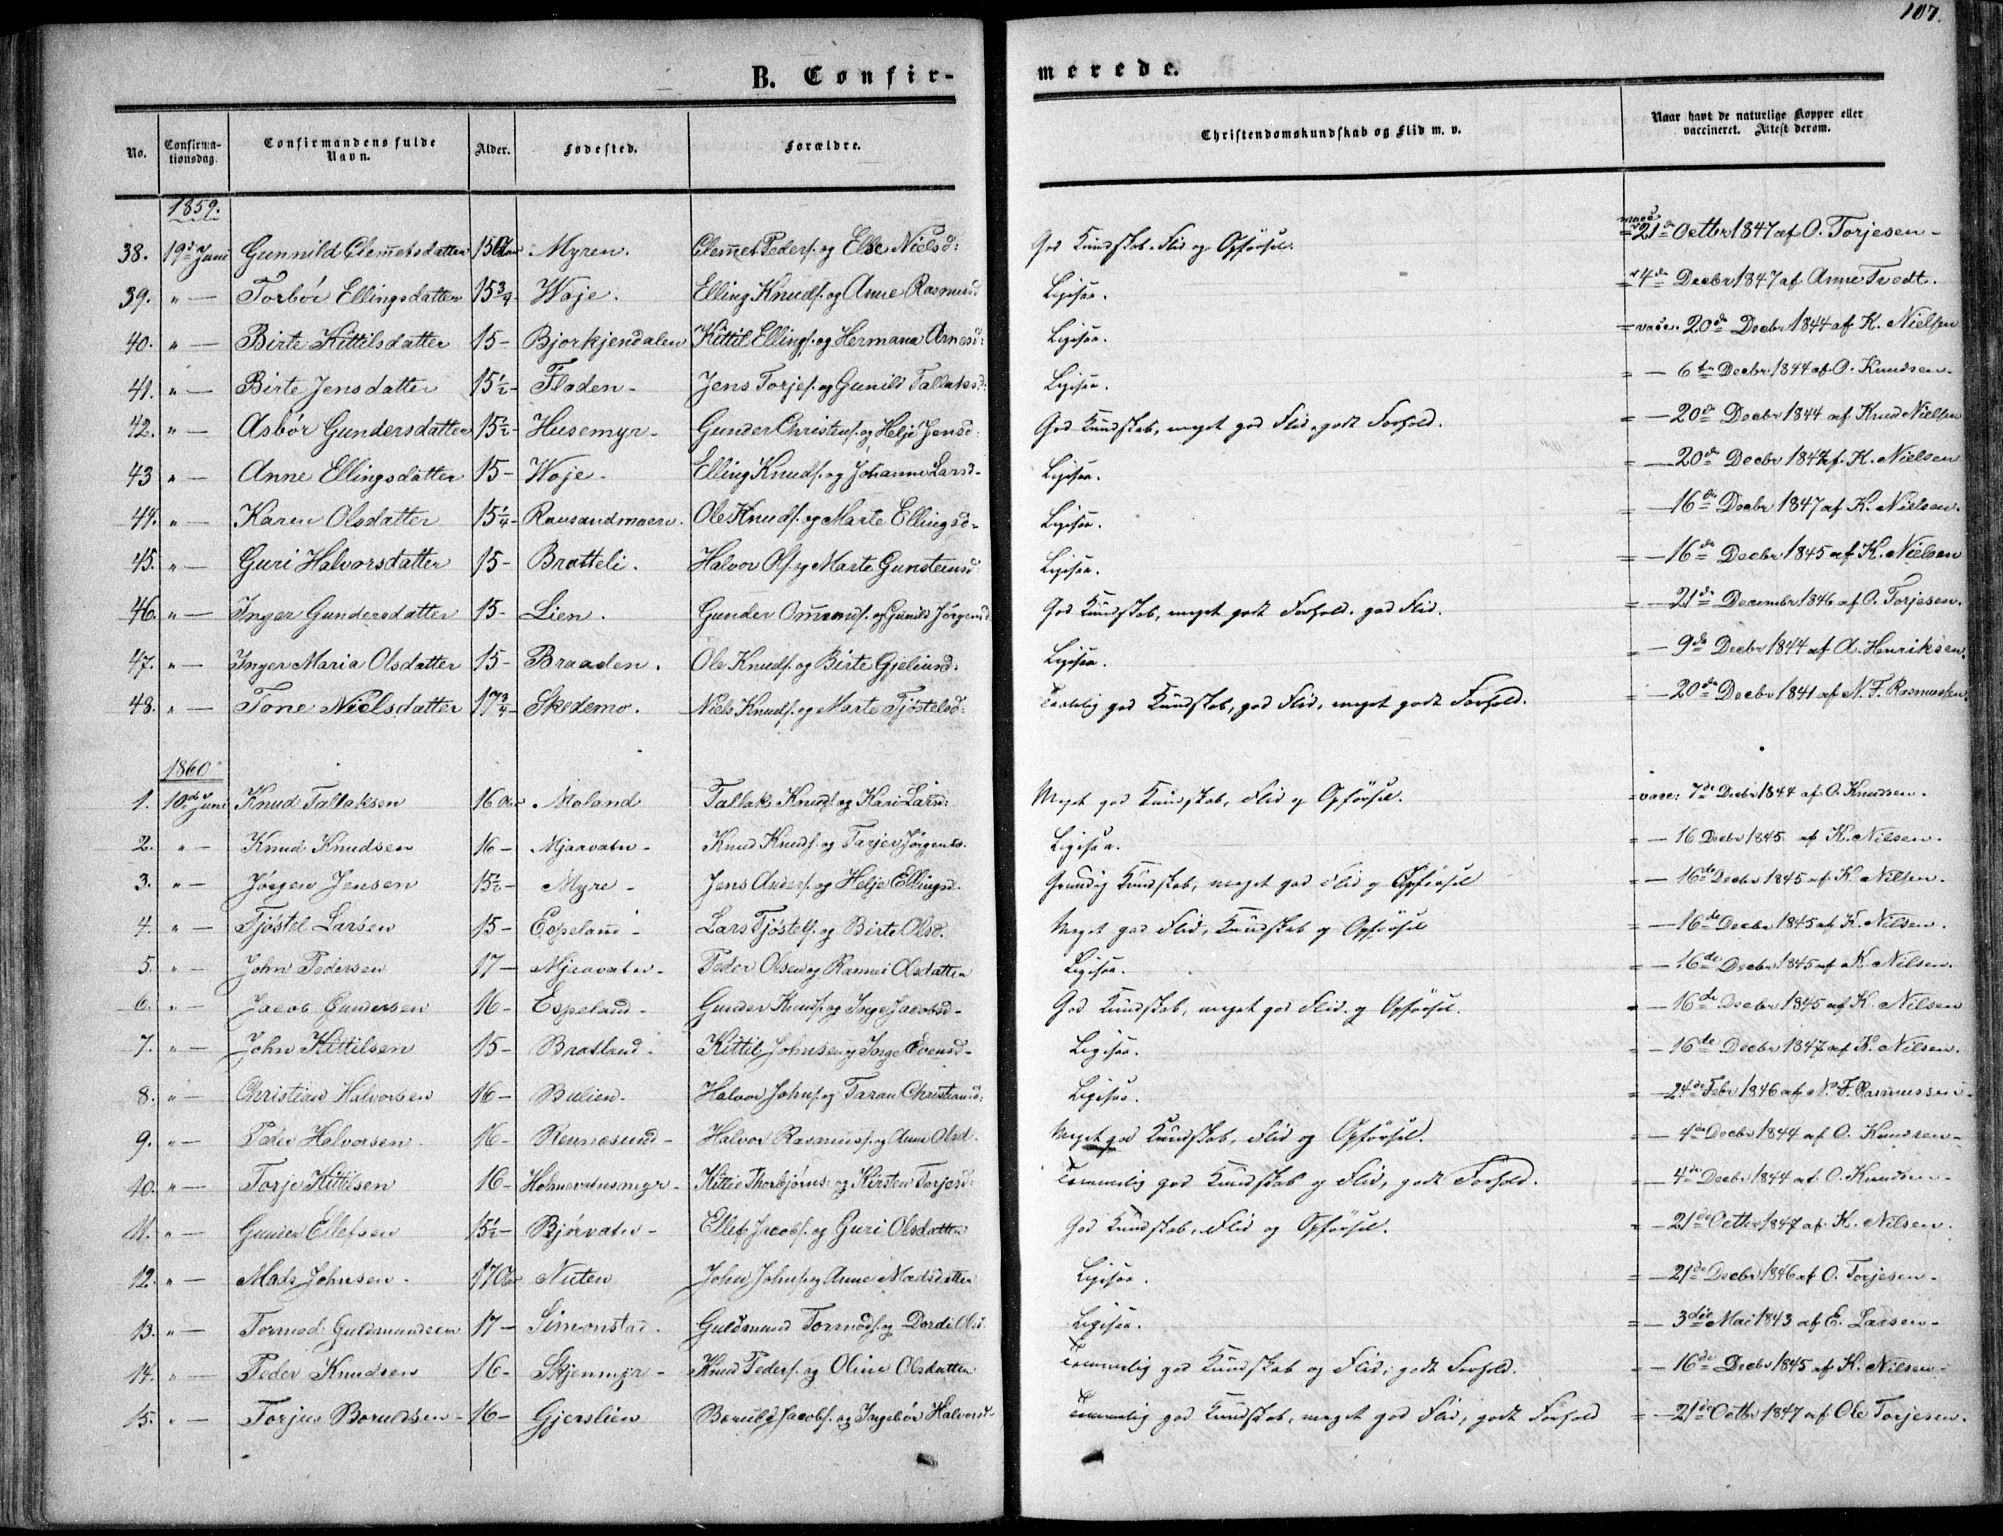 107.
B. Confirmerede.
No. Confirmationsdag. Confirmandens fulde Navn. Alder. Fødested. Forældre. Christendomskundskab og Flid m. v. Naar havt de naturlige Kopper eller vaccineret. Attest derom.
1859.
38. 19de Juni Gunnild Clemetsdatter 15 Aar Myren. Clemet Peders. og Else Nielsd: God Kundskab. Flid og Opførsel. = vacc. 21de Octbr 1847 af O. Torjesen -
39. " — Torbør Ellingsdatter 15 3/4 Woje. Elling Knuds. og Anne Rasmusd Ligesaa. = 4de Decbr 1847 af Anne Tvedt.
40. " — Birte Kittilsdatter 15 - Bjorkjendalen Kittil Ellings. og Hermana Arnesd: Ligesaa. = vacc. 20de Decbr 1844 af K. Nielsen
41. " — Birte Jensdatter 15 1/2 - Fladen - Jens Torjes. og Gunild Tallaksd: Ligesaa. = — 6te Decbr 1844 af O. Knudsen.
42. " — Asbør Gundersdatter 15 1/2 - Husemyr - Gunder Christens. og Helje Jensd: God Kundskab, meget god Flid, godt Forhold. = — 20de Decbr 1844 af Knud Nielsen
43 " — Anne Ellingsdatter 15 - Woje - Elling Knuds. og Johanne Larsd - Ligesaa. = — 20de Decbr 1844 af K. Nielsen
44. " — Karen Olsdatter 15 1/4 - Rausandmoen. Ole Knuds. og Marte Ellingsd - Ligesaa. = — 16de Decbr 1847 af K. Nielsen.
45. " — Guri Halvorsdatter 15 - Bratteli. Halvor Ols. og Marte Gunsteinsd: Ligesaa. = — 16de Decbr 1845 af K. Nielsen
46. " — Inger Gundersdatter 15 - Lien. Gunder Omunds. og Gunild Jørgensd God Kundskab, meget godt Forhold. god Flid. = — 21de Decembr 1846 af O. Torjesen.
47. " — Inger Maria Olsdatter 15 - Braaden. Ole Knuds. og Birte Gjeliusd: Ligesaa. = — 9de Decbr 1844 af A. Henriksen.
48. " — Tone Nielsdatter 17 3/4 - Skedemo. Niels Knuds. og Marte Tjøstelsd: Temmelig god Kundskab, god Flid, meget godt Forhold. = — 20de Decbr 1841 af N. F. Rasmussen
1860
1. 10de Juni Knud Tallaksen 16 Aar Moland Tallak Knuds og Kari Larsd: Meget god Kundskab, Flid og Opførsel. = vacc: 7de Decbr 1844 af O. Knudsen.
2. " — Knud Knudsen 16 - Mjaavatn - Knud Knuds. og Tarjer Jørgensd. Ligesaa. = — 16 Decbr 1845 af K. Nilsen.
3. " — Jørgen Jensen 15 1/2 - Myre - Jens Anders. og Helje Ellingsd. Grundig Kundskab, meget god Flid og Opførsel = — 16de Decbr 1845 af K. Nilsen.
4. " — Tjøstel Larsen 15 - Espeland - Lars Tjøstels. og Birte Olsd. Meget god Flid, Kundskab og Opførsel = — 16de Decbr 1845 af K. Nilsen.
5. " — John Pedersen 17 — Mjaavatn - Peder Olsen og Rannei Olsdatter Ligesaa. = — 16de Decbr 1845 af K. Nilsen.
6. " — Jacob Gundersen 16 - Espeland - Gunder Knuds. og Inge Jacobsd - God Kundskab, meget god Flid. og Opførsel. = — 16de Decbr 1845 af K. Nilsen
7. " — John Kittilsen 15 - Bratland. Kittil Johnsen og Inge Evensd - Ligesaa. = — 16de Decbr 1847 af K. Nilsen.
8. " — Christian Halvorsen 16 - Bulien. Halvor Johns. og Taran Christiansd: Ligesaa. = — 24de Febr 1846 af N. F. Rasmussen.
9. " — Peder Halvorsen. 16 - Rennesund - Halvor Rasmus. og Anne Olsd. Meget god Kundskab, Flid og Opførsel. = — 4de Decbr 1844 af O. Knudsen -
10. " — Torje Kittilsen 16 - Holmevatnsmyr - Kittil Thorbjørns: og Kirsten Torjesd: Temmelig god Kundskab og Flid, godt Forhold. = — 4de Decbr 1844 af O. Knudsen -
11. " — Gunder Ellefsen 15 1/2 - Bjørvatn - Ellef Jacobs. og Guri Olsdatter God Kundskab, Flid og Opførsel. = — 21de Octbr 1847 af K. Nilsen.
12. " — Mads Johnsen - 17 Aar Nuten John Johns. og Anne Madsdatter Ligesaa. = — 21de Decbr 1846 af O. Torjesen -
13. " — Tormod Guldmundsen 17 — Simonstad. Guldmund Tormods. og Dorde Olsd. Ligesaa. = — 3die Mai 1843 af E. Larsen -
14. " — Peder Knudsen 16 - Skjenmyr - Knud Peders. og Oline Olsdatter Temmelig god Kundskab og Flid, godt Forhold. = — 16de Decbr 1845 af K. Nilsen -
15. " — Torjus Borulfsen - 16 - Gjerslien Borulf Jacobs. og Ingebør Halvorsd - Temmelig god Kundskab, meget god Flid, godt Forhold = — 21de Octbr 1847 af Ole Torjesen.